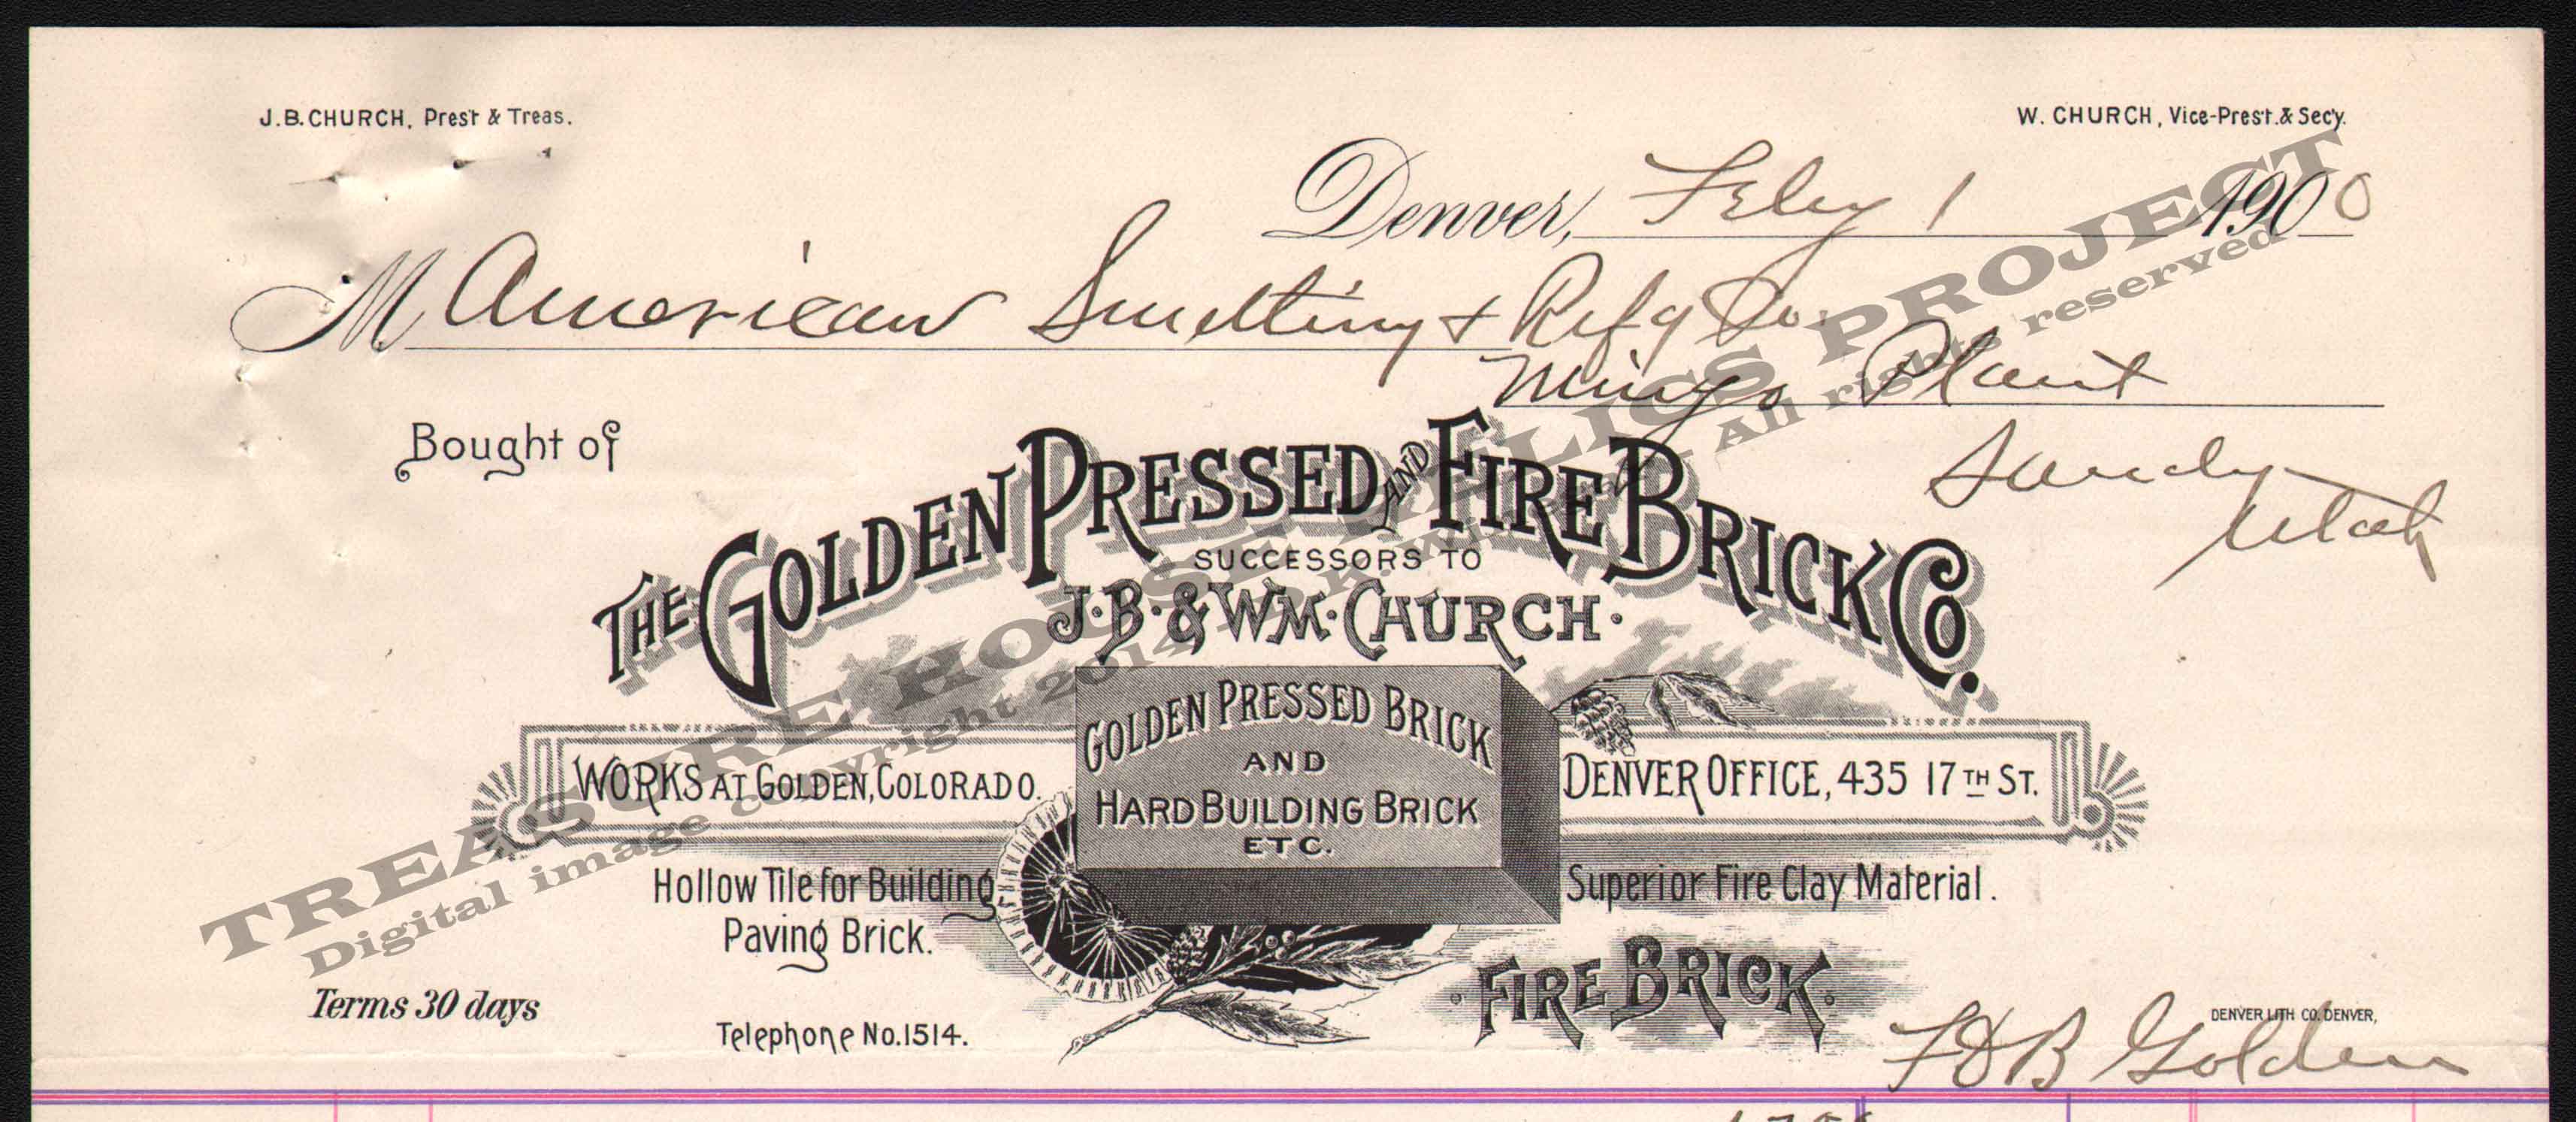 J.B. CHURCH, Pres't & Treas.
W. CHURCH, Vice-Pres't. & Sec'y.
Denver, Feby 1 1900
M American Smelting & Refg Co.
Mingo Plant
Sandy
Utah
Bought of
THE GOLDEN PRESSED AND FIRE BRICK CO.
SUCCESSORS TO
J. B. & WM. CHURCH.
GOLDEN PRESSED BRICK
AND
HARD BUILDING BRICK
ETC.
WORKS AT GOLDEN, COLORADO.
DENVER OFFICE, 435 17TH ST.
Hollow Tile for Building
Paving Brick.
Superior Fire Clay Material.
FIRE BRICK.
Terms 30 days
Telephone No. 1514.
DENVER LITH CO. DENVER,
FOB Golden
TREASURE HOUSE RELICS PROJECT
Digital image copyright 2014 All rights reserved